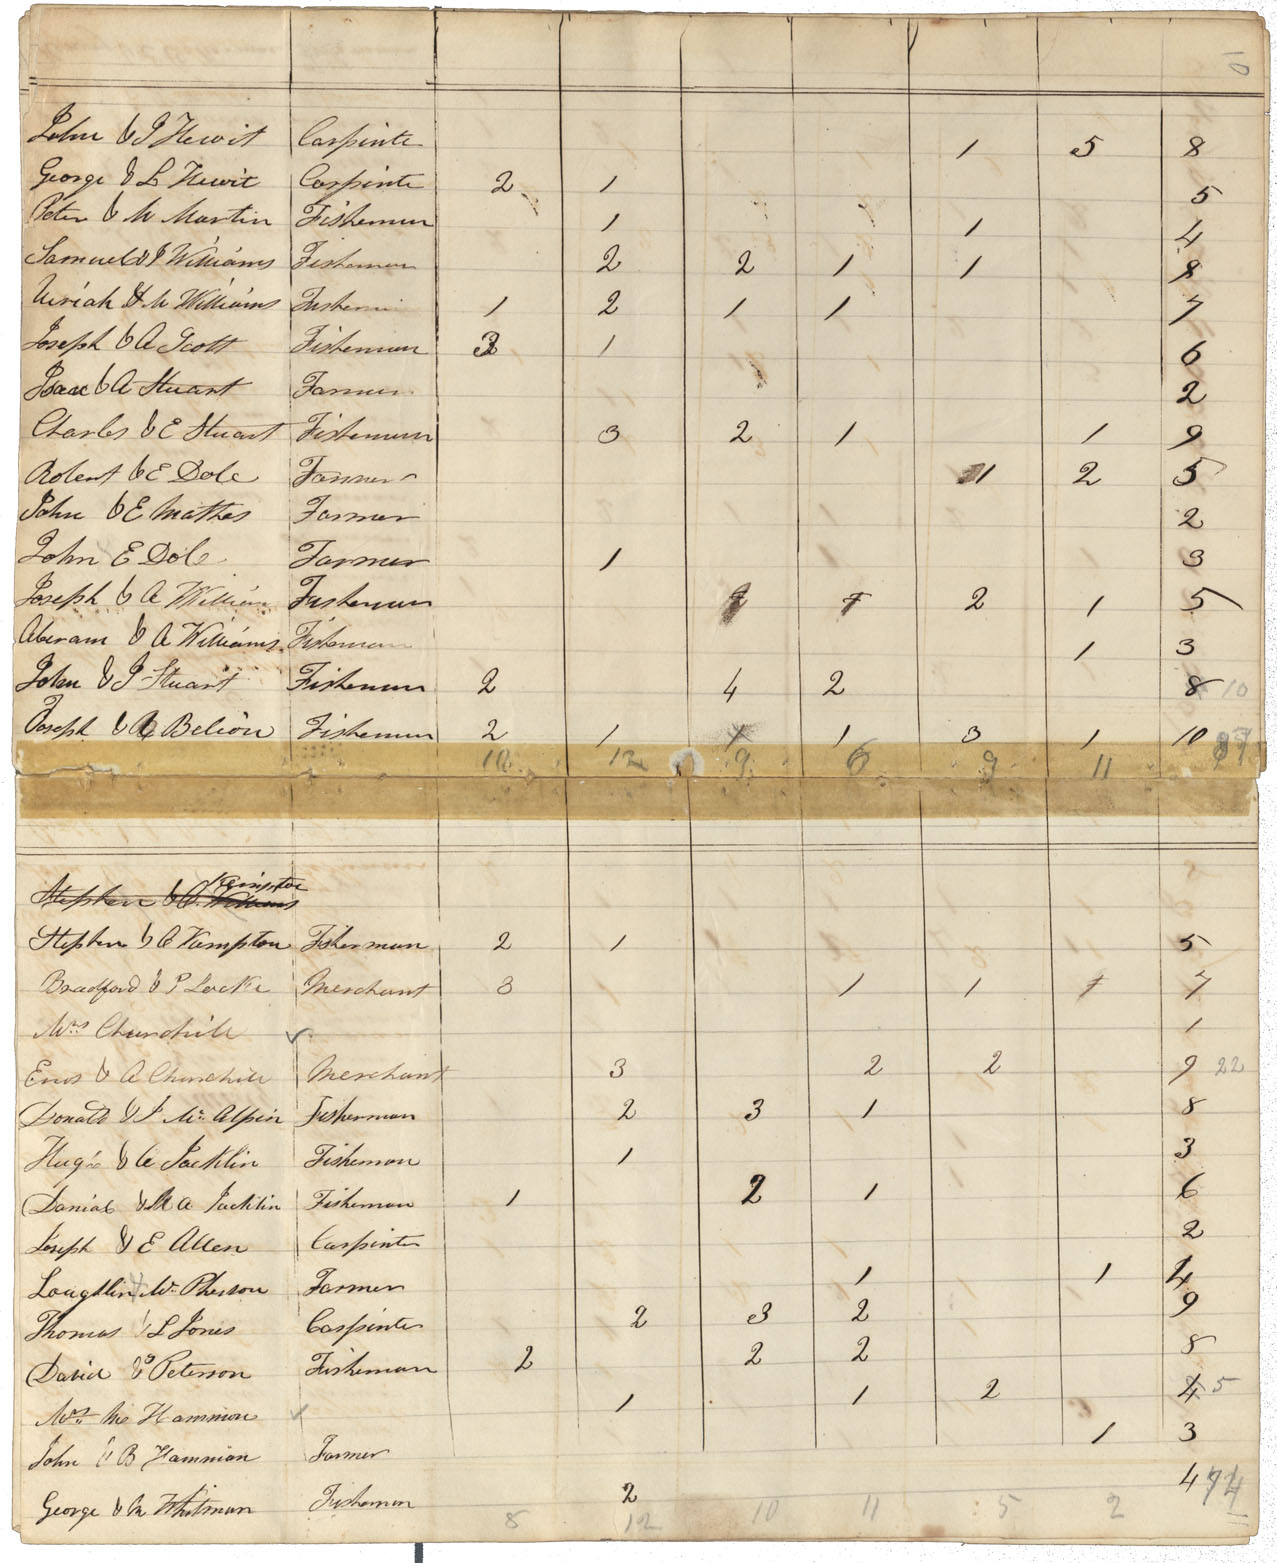 10
John & J Hewit Carpinte 1 5 8
George & L Hewit Carpinte 2 1 5
Peter & M Martin Fishemun 1 1 4
Samuel & J Williams Fishemun 2 2 1 1 8
Uiriah & M Williams Fishem 1 2 1 1 7
Joseph & A Scott Fishemun 3 1 6
Isaac & A Stuart Farmer 2
Charles & E Stuart Fishemun 3 2 1 1 9
Robert & E Dole Farmer 1 2 5
John & E Mathes Farmer 2
John E Dole Farmer 1 3
Joseph & A William Fishemun 2 1 5
Abiram & A Williams Fisheman 1 3
John & J Stuart Fishemun 2 4 2 8 10
Joseph & Belion Fishemun 2 1 1 1 3 1 10
10 12 9 6 9 11 87
Stephen & C. Williams Kempton
Stephen & C Kempton Fisherman 2 1 5
Bradford & P Locke Merchant 3 1 1 1 7
Mrs Churchill 1
Enos & A Churchill Merchant 3 2 2 9 22
Donald & J Mc Alpin Fisherman 2 3 1 8
Hugh & C Jacklin Fisheman 1 3
Danial & M A Jacklin Fisheman 1 2 1 6
Joseph & E Allen Carpinte 2
Loughlin Mc Pherson Farmer 1 1 4
Thomas & L Jones Carpinte 2 3 2 9
David & Peterson Fisheman 2 2 2 8
Mrs Mc Hammion 1 1 2 4 5
John & B Hammian Farmer 1 3
George & M Whitman Fishemun 2 4 74
8 12 10 11 5 2